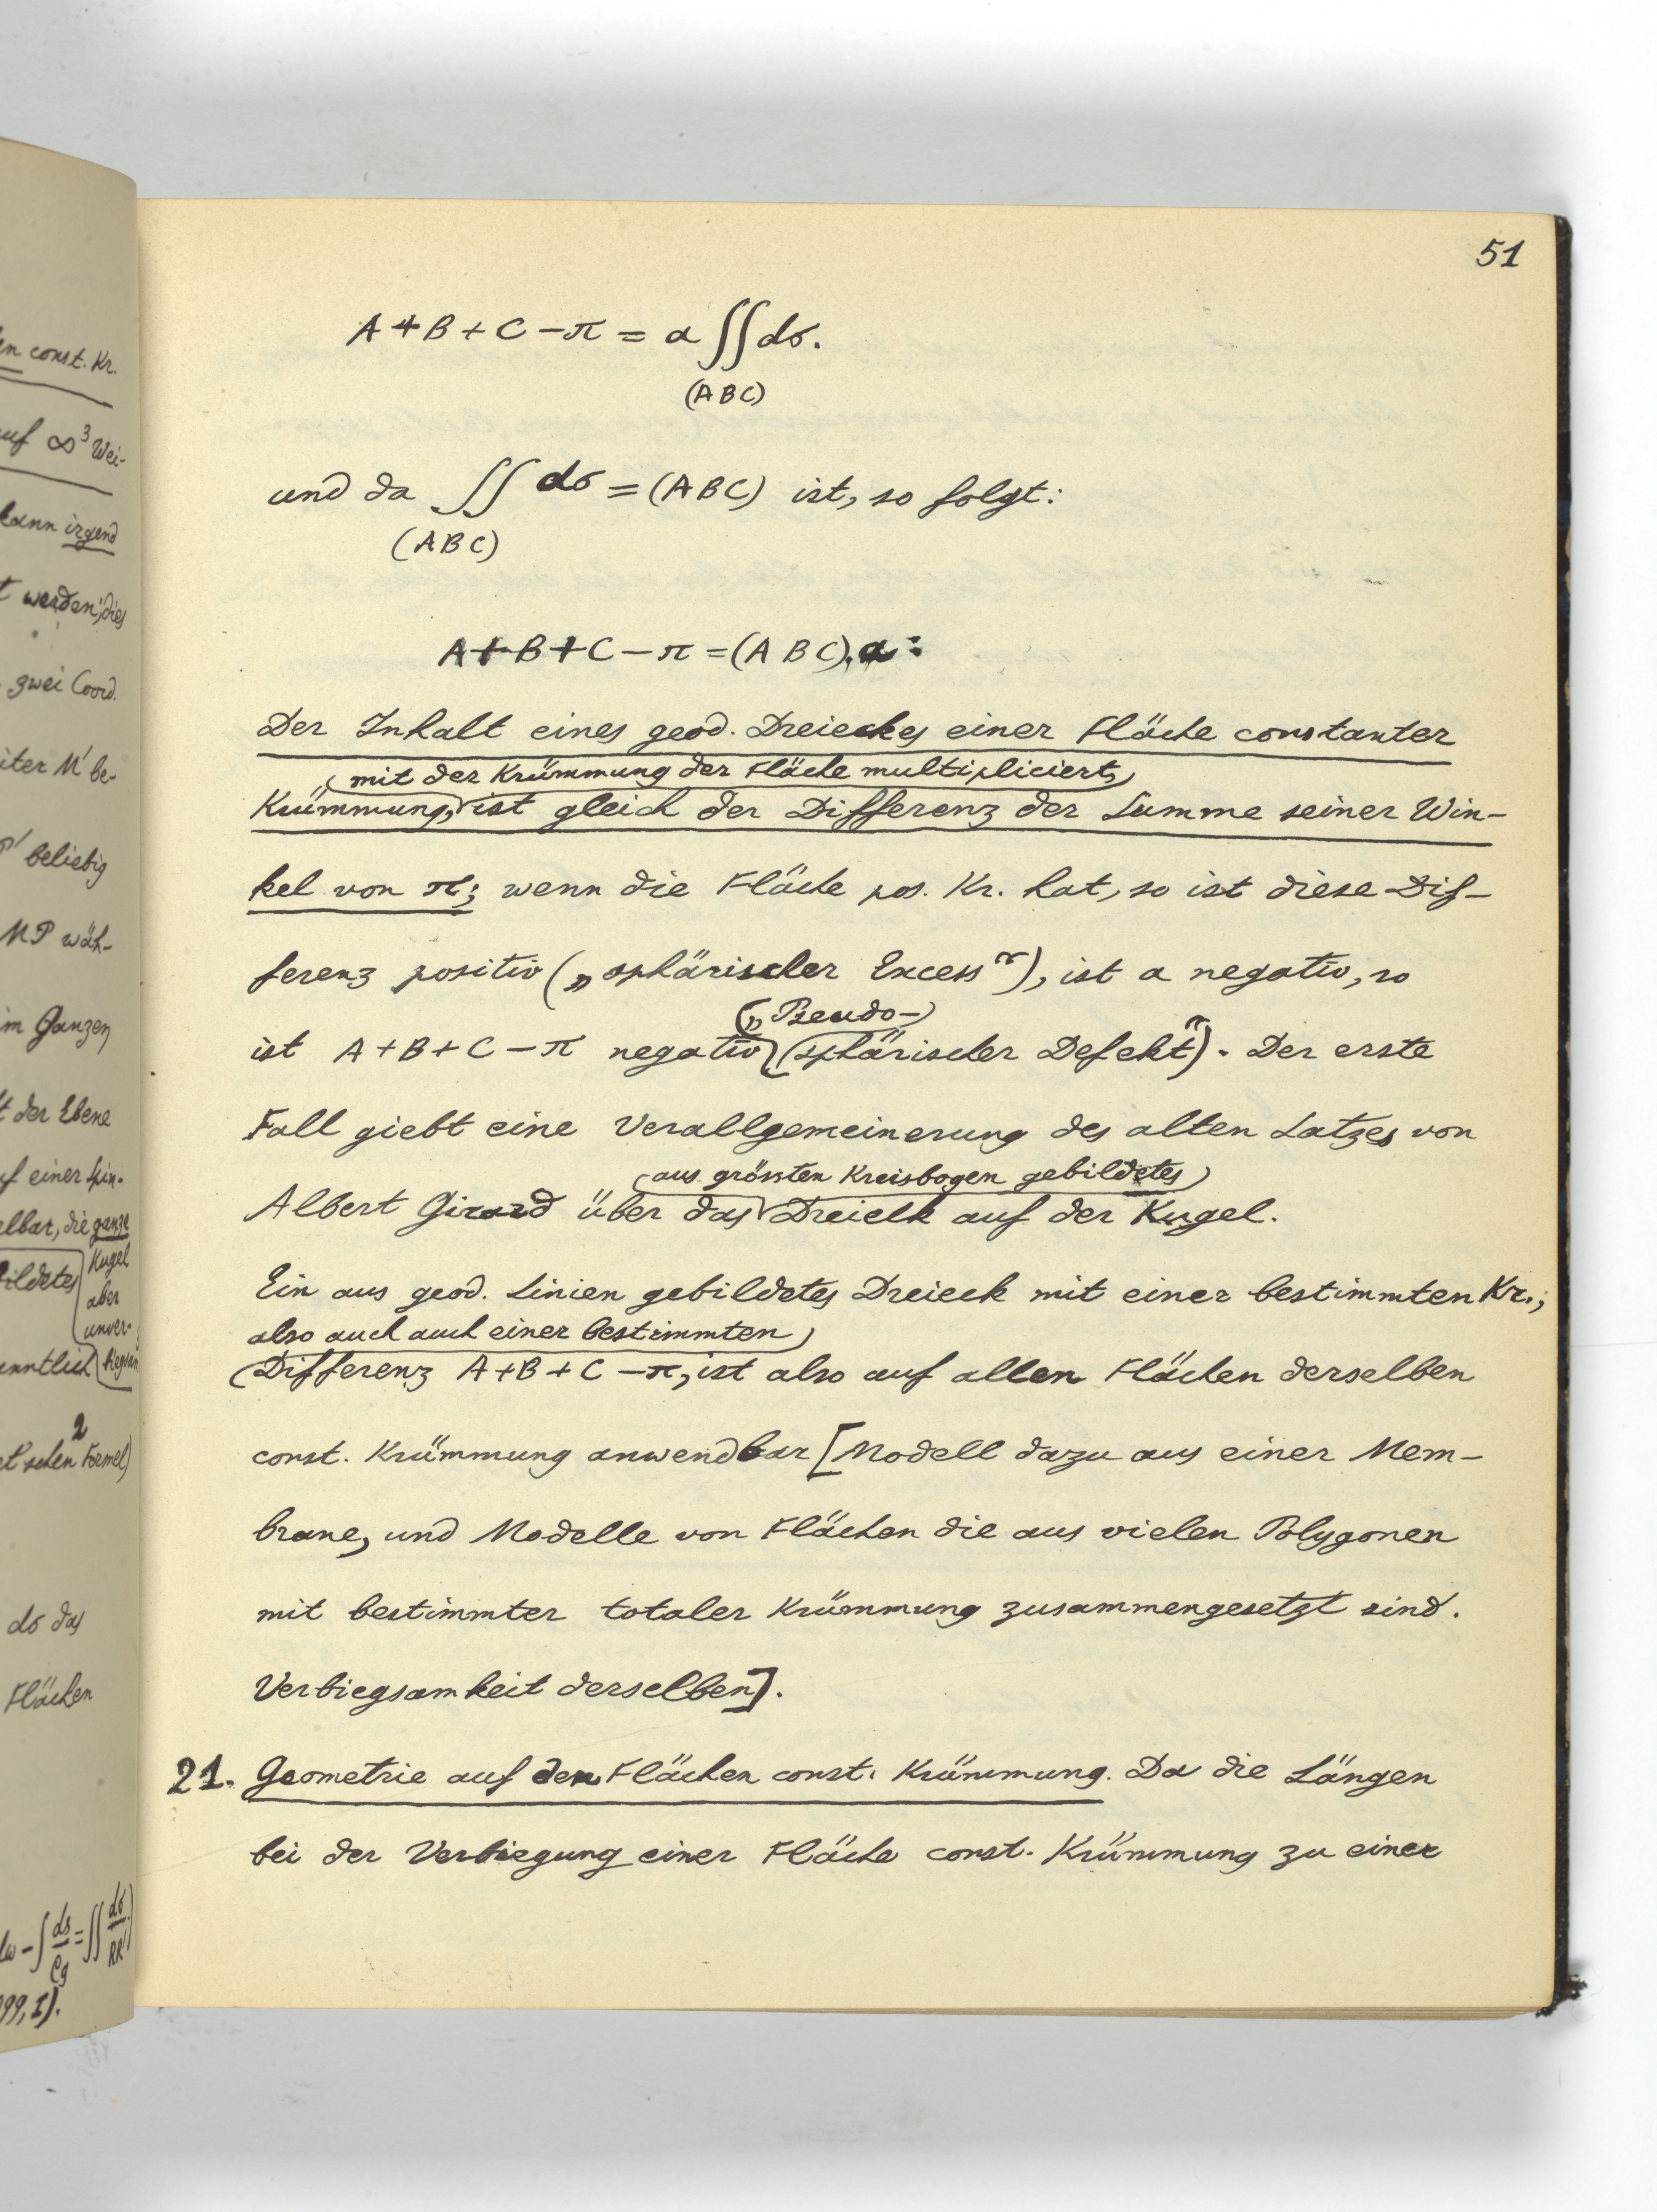 51
A+B+C-π = a∬dσ.
(ABC)
und da ∬ dσ = (ABC) ist, so folgt:
(ABC)
A+B+C-π = (ABC).a:
Der Inhalt eines geod. Dreieckes einer Fläche constanter
mit der Krümmung der Fläche multipliciert,
Krümmung, ist gleich der Differenz der Summe seiner Win-
kel von π; wenn die Fläche pos. Kr. hat, so ist diese Dif-
ferenz positiv („sphärischer Excess“), ist a negativ, so
(„Pseudo-
ist A+B+C-π negativ (sphärischer Defekt“). Der erste
Fall giebt eine Verallgemeinerung des alten Satzes von
aus grössten Kreisbogen gebildetes
Albert Girard über das Dreieck auf der Kugel.
Ein aus geod. Linien gebildetes Dreieck mit einer bestimmten Kr.,
also auch auch einer bestimmten
Differenz A+B+C-π, ist also auf allen Flächen derselben
const. Krümmung anwendbar [Modell dazu aus einer Mem-
brane, und Modelle von Flächen die aus vielen Polygonen
mit bestimmter totaler Krümmung zusammengesetzt sind.
Verbiegsamkeit derselben].
21. Geometrie auf den Flächen const. Krümmung. Da die Längen
bei der Verbiegung einer Fläche const. Krümmung zu einer
const. Kr.
auf ∞³ Wei-
kann irgend
werden; dies
zwei Coord.
M' be-
beliebig
MP wäh-
im Ganzen
der Ebene
auf einer Spin-
die ganze
Kugel
aber
unver-
2
schen Formel)
dσ das
Flächen
-∫ds/ρg = ∬dσ/RR'
99, I).